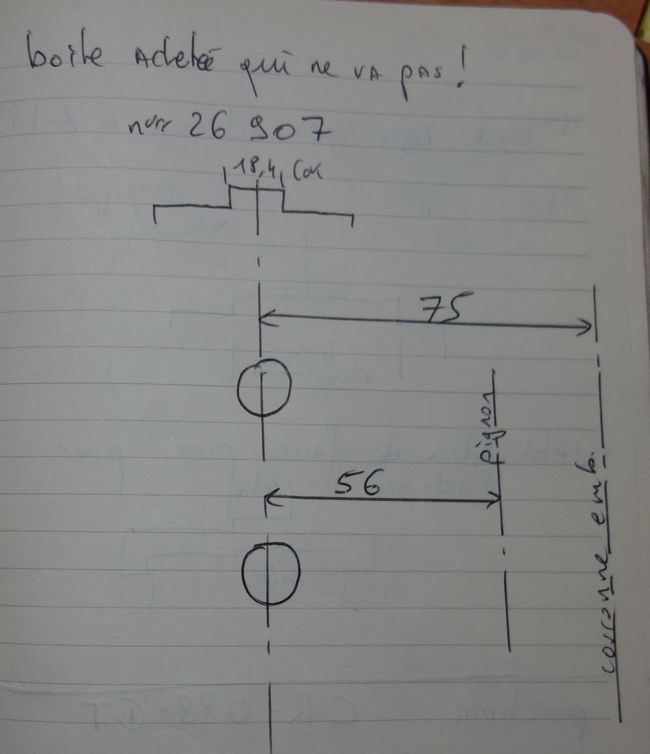 boite Achetée qui ne VA pas!
26 907
18,4
75
pignon
56
couronne emb.